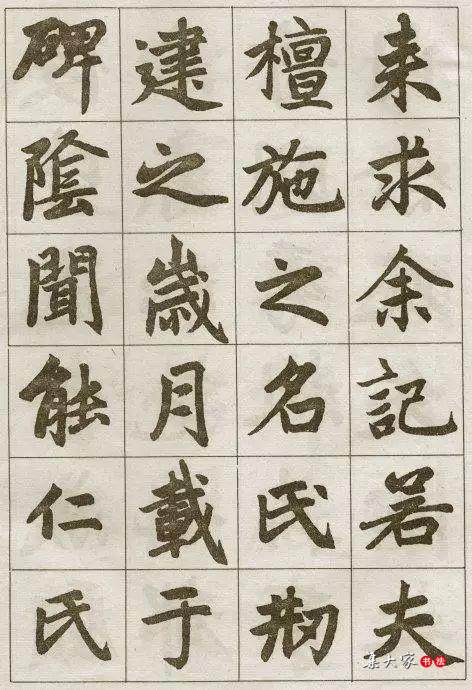 来求余記若夫
檀施之名氏剏
建之歲月載于
碑陰聞能仁氏
集大家书法